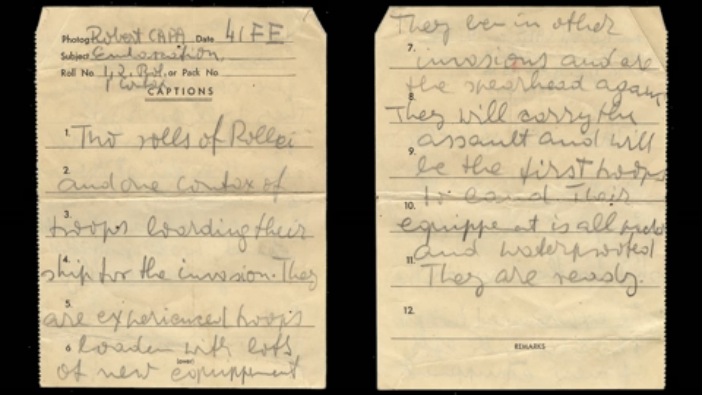 Photog Robert CAPA Date 41 FE
Subject Embarcation,
Roll No 1, 2, Rol. or Pack No
1 Contax
CAPTIONS
1. Two rolls of Rollei
2. and one Contax of
3. troops loarding their
4. ship for the invasion. They
5. are experienced troops
6 loaden with lots
(over)
of new equippment
They ben in other
7. invasions and are
the spearhead again
8. They will carry the
assault and will
9. be the first troops
to land Their
10. equippent is all
and waterproofed
11. They are ready.
12.
REMARKS